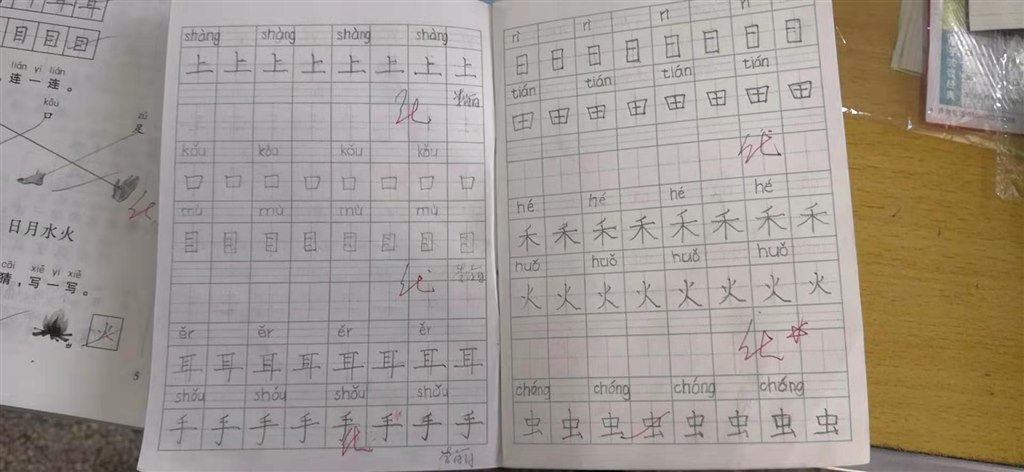 耳 耳
目 目
lián yi lián
连一连。
kǒu
口
zú
足
日月水火
cāi xiě yi xiě
猜，写一写。
火
5
shàng shàng shàng shàng
上 上 上 上 上 上 上 上
kǒu kǒu kǒu kǒu
口 口 口 口 口 口 口 口
mù mù mù mù
目 目 目 目 目 目 目 目
ěr ěr ěr ěr
耳 耳 耳 耳 耳 耳 耳 耳
shǒu shǒu shǒu shǒu
手 手 手 手 手 手 手 手
rì rì rì rì
日 日 日 日 日 日 日 日
tián tián tián tián
田 田 田 田 田 田 田 田
hé hé hé hé
禾 禾 禾 禾 禾 禾 禾 禾
huǒ huǒ huǒ huǒ
火 火 火 火 火 火 火 火
chóng chóng chóng chóng
虫 虫 虫 虫 虫 虫 虫 虫